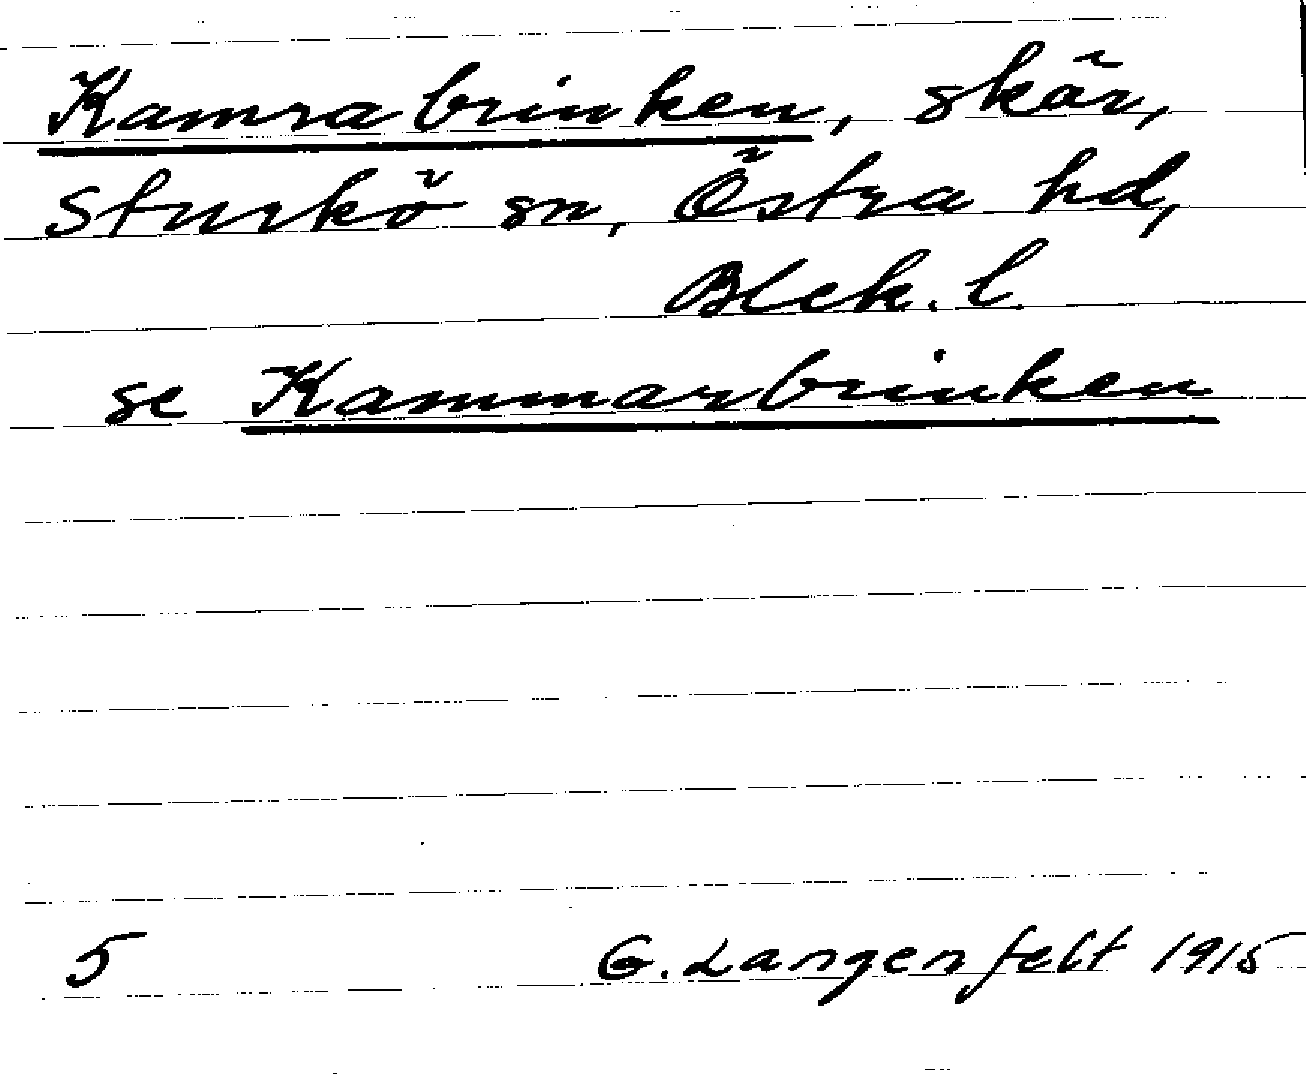 Kamrabrinken, skär,
Sturkö sn, Östra hd,
Blek. l.
se Kammarbrinken
5 G. Langenfelt 1915